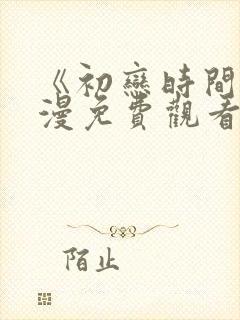 《初戀時間
漫免費觀看
陌止